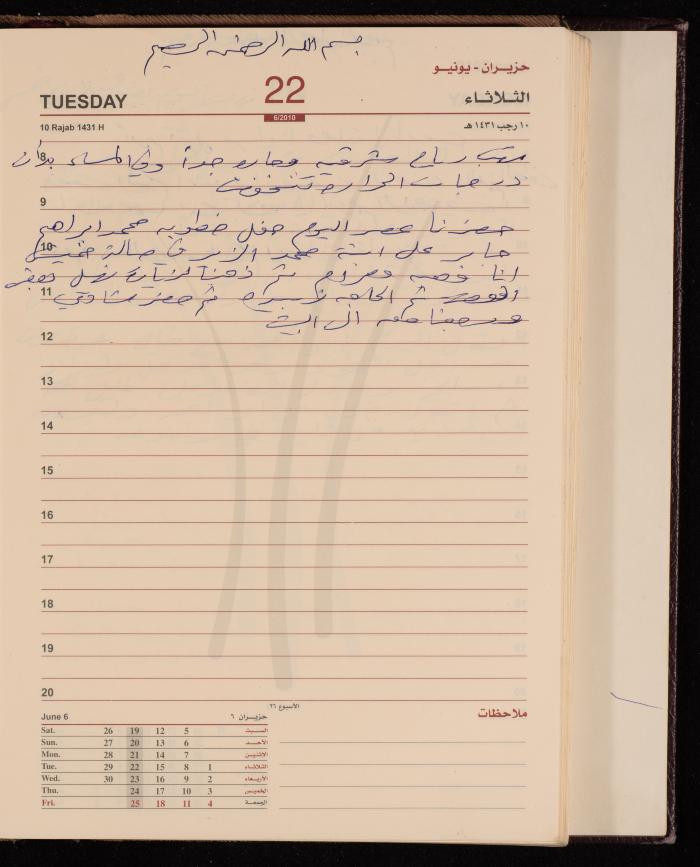 بسم الله الرحمن الرحيم
حزيران - يونيو
TUESDAY 22 الثلاثاء
6/2010
10 Rajab 1431 H ١٠ رجب ١٤٣١ هـ
8 رياح شرقية وحاره جداً وفي المساء بدأت
درجات الحرارة تنخفض
9
حضرنا عصر اليوم حفل خطوبه محمد ابراهيم
10 جابر على ابنة محمد في صالة
انا ثم ذهبنا لزيارة
11 ثم ثم حضر
ورجعنا معه الى البيت
12
13
14
15
16
17
18
19
20
الأسبوع ٢٦
June 6 حزيران ٦ ملاحظات
Sat. 26 19 12 5 السبت
Sun. 27 20 13 6 الأحد
Mon. 28 21 14 7 الاثنين
Tue. 29 22 15 8 1 الثلاثاء
Wed. 30 23 16 9 2 الأربعاء
Thu. 24 17 10 3 الخميس
Fri. 25 18 11 4 الجمعة